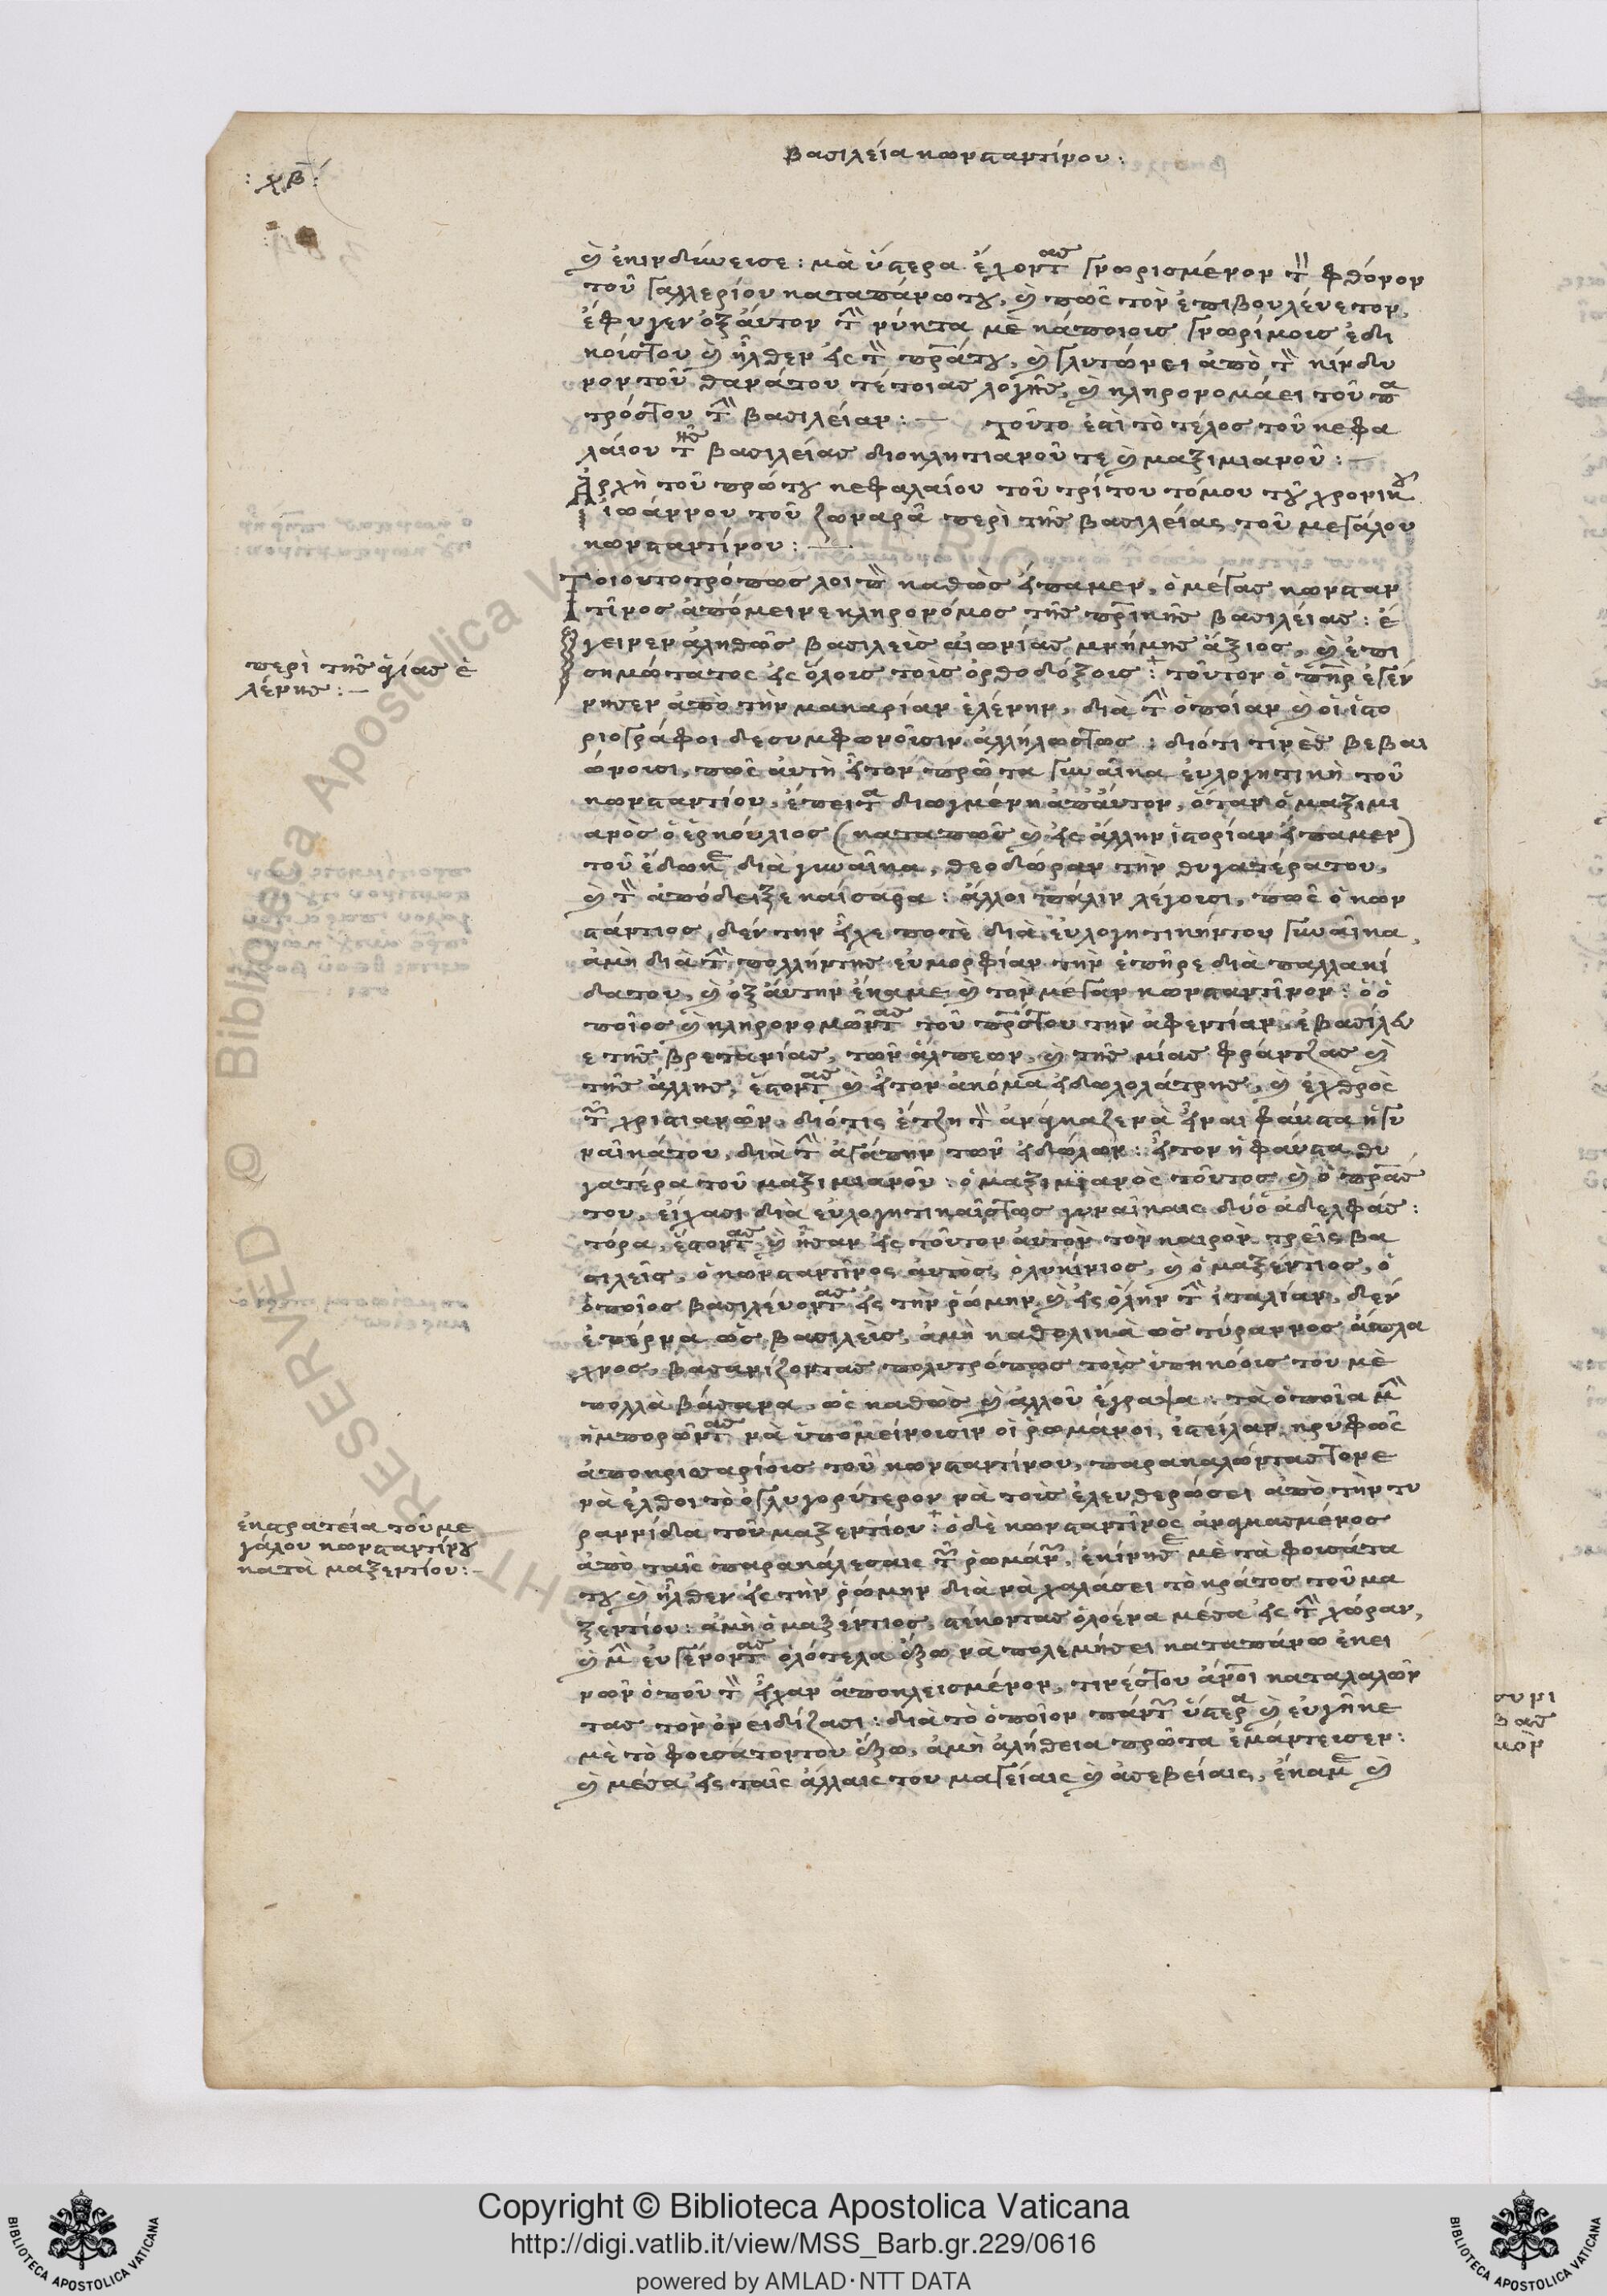 βασιλεία κωνσταντίνου:
:χβ:
ϗ ἐκινδίωεισε: μὰ ὕστερα ἔχοντας γνωρισμένον τὸν φθόνον
τοῦ γαλλερίου καταπάνωτου, ϗ πῶς τὸν ἐπιβουλένετον,
ἔφυγεν ὀξ αὐτον τὴν νύκτα μὲ κάποιοις γνωρίμοις ἐδι
κοίςτου ϗ ἦλθεν εἰς τὸν πράτου, ϗ γλυτώνει ἀπὸ τὸν κίνδυ
νον τοῦ θανάτου τέτοιας λογῆς, ϗ κληρονομάει τοῦ πα
τρόςτου τὴν βασιλείαν: — τοῦτο ἐστὶ τὸ τέλος τοῦ κεφα
λαίου τῆς βασιλείας διοκλητιανοῦ τε ϗ μαξιμιανοῦ: —
Ἀρχὴ τοῦ πρώτου κεφαλαίου τοῦ τρίτου τόμου τοῦ χρονικοῦ
ἰωάννου τοῦ ζωναρᾶ περὶ τῆς βασιλείας τοῦ μεγάλου
κωνσταντίνου: —
Τοιουτοτρόπως λοιπὸν καθὼς εἴπαμεν, ὁ μέγας κωνσταν
τῖνος ἀπόμεινε κληρονόμος τῆς πρικῆς βασιλείας: ἐ
γεινεν ἀληθῶς βασιλεὺς αἰωνίας μνήμης ἄξιος, ϗ ἐπι
σημώτατος εἰς ὅλοις τοῖς ὀρθοδόξοις: τοῦτον ὁ πὴρ ἐγέν
περὶ τῆς ἁγίας ἑ
λένης: —
νησεν ἀπὸ τὴν μακαρίαν ἑλένην, διὰ τὴν ὁποίαν ϗ οἱ ἱστο
ριογράφοι δεσυμφωνοῦσιν ἀλλήλωςτως: διότι τινὲς βεβαι
ώνοισι, πῶς αὐτὴ ἦτον πρῶτα γυναῖκα εὐλογητικὴ τοῦ
κωνσταντίου, ἔπειτα διωγμένη ἀπαὐτον, ὅταν ὁ μαξιμι
ανὸς ὁ ἑρκούλιος (καταπῶς ϗ εἰς ἄλλην ἱστορίαν εἴπαμεν)
τοῦ ἔδωκε διὰ γυναῖκα, θεοδώραν τὴν θυγατέρατου,
ϗ τὸν ἀπόδειξε καίσαρα: ἄλλοι πάλιν λέγοισι, πῶς ὁ κων
στάντιος, δέν τὴν εἶχε ποτὲ διὰ εὐλογητικήντου γυναῖκα,
ἀμὴ διὰ τὴν πολλήντης εὐμορφίαν τὴν ἐπῆρε διὰ παλλακί
δατου, ϗ ὀξ αὐτην ἔκαμε ϗ τὸν μέγαν κωνσταντῖνον: ὁ ὁ
ποῖος ϗ κληρονομῶντας τοῦ πρόςτου τὴν ἀφεντίαν, ἐβασίλευ
ε τῆς βρετανίας, τῶν ἄλπεων, ϗ τῆς μίας φράντζας ϗ
τῆς ἄλλης, ἔστοντας ϗ ἦτον ἀκόμα εἰδωλολάτρης, ϗ ἐχθρὸς
τῶν χριστιανῶν, διότις ἔτζη τὸν ἀνάγκαζενὰ εἶναι φαύστα ἡ γυ
ναῖκάτου, διὰ τὴν ἀγάπην τῶν εἰδώλων: ἦτον ἡ φαύστα θυ
γατέρα τοῦ μαξιμιανοῦ: ὁ μαξιμιανὸς τοῦτος ϗ ὁ πρας
του, εἴχασι διὰ εὐλογητικαῖςτως γυναῖκαις δύο ἀδελφάς:
τόρα, ἔστοντας ϗ ἦσαν εἰς τοῦτον αὐτὸν τὸν καιρὸν τρεῖς βα
σιλεῖς, ὁ κωνσταντῖνος αὐτος, ὁ λυκίνιος, ϗ ὁ μαξέντιος, ὁ
ὁποῖος βασιλένοντας εἰς τὴν ῥώμην ϗ εἰς ὅλην τὴν ἰταλίαν, δέν
ἐπέρνα ὡς βασιλεὺς, ἀμὴ καθολικὰ ὡς τύραννος ἄσπλα
χνος, βασανίζοντας πολυτρόπως τοῖς ὑπηκόοις του μὲ
πολλὰ βάσανα, ὡς καθὼς ϗ ἀλλοῦ ἔγραψα: τὰ ὁποῖα μὴν
ἠμπορῶντας νὰ ὑπομείνοισιν οἱ ῥωμάνοι, ἐστείλαν κρυφῶς
ἀποκρισαρίοις τοῦ κωνσταντίνου, παρακαλώνταςτονε
νὰ ἐλθοι τὸ ὀγλυγορύτερον νὰ τοῖς ἐλευθερώσει ἀπὸ τὴν τυ
ραννίδα τοῦ μαξεντίου: ὁ δὲ κωνσταντῖνος ἀναγκασμένος
ἐκστρατεία τοῦ με
γάλου κωνσταντίνου
κατὰ μαξεντίου: —
ἀπο ταῖς παρακάλεσαις τῶν ῥωμάνων, ἐκίνησε μὲ τὰ φοισάτα
του ϗ ἦλθεν εἰς τὴν ῥώμην διὰ νὰ χαλάσει τὸ κράτος τοῦ μα
ξεντίου: ἀμὴ ὁ μαξέντιος, στέκοντας ὁλοένα μέσα εἰς τὴν χώραν,
ϗ μὴν εὐγένοντας ὁλότελα ὄξω νὰ πολεμήσει καταπάνω ἐκεί
νων ὁποῦ τὸν εἶχαν ἀποκλεισμένον, τινέςτου ἄνοι καταλαλῶν
τας τὸν ὀνειδίζασι: διὰ τὸ ὁποῖον πάντων ὕστερα ϗ εὐγῆκε
μὲ τὸ φοισάτοντου ὄξω, ἀμὴ ἀλήθεια πρῶτα ἐμάντευσεν:
ϗ μέσα εἰς ταῖς ἄλλαις του μαγείαις ϗ ἀσεβείαις, ἔκαμε ϗ
Copyright © Biblioteca Apostolica Vaticana
http://digi.vatlib.it/view/MSS_Barb.gr.229/0616
powered by AMLAD·NTT DATA